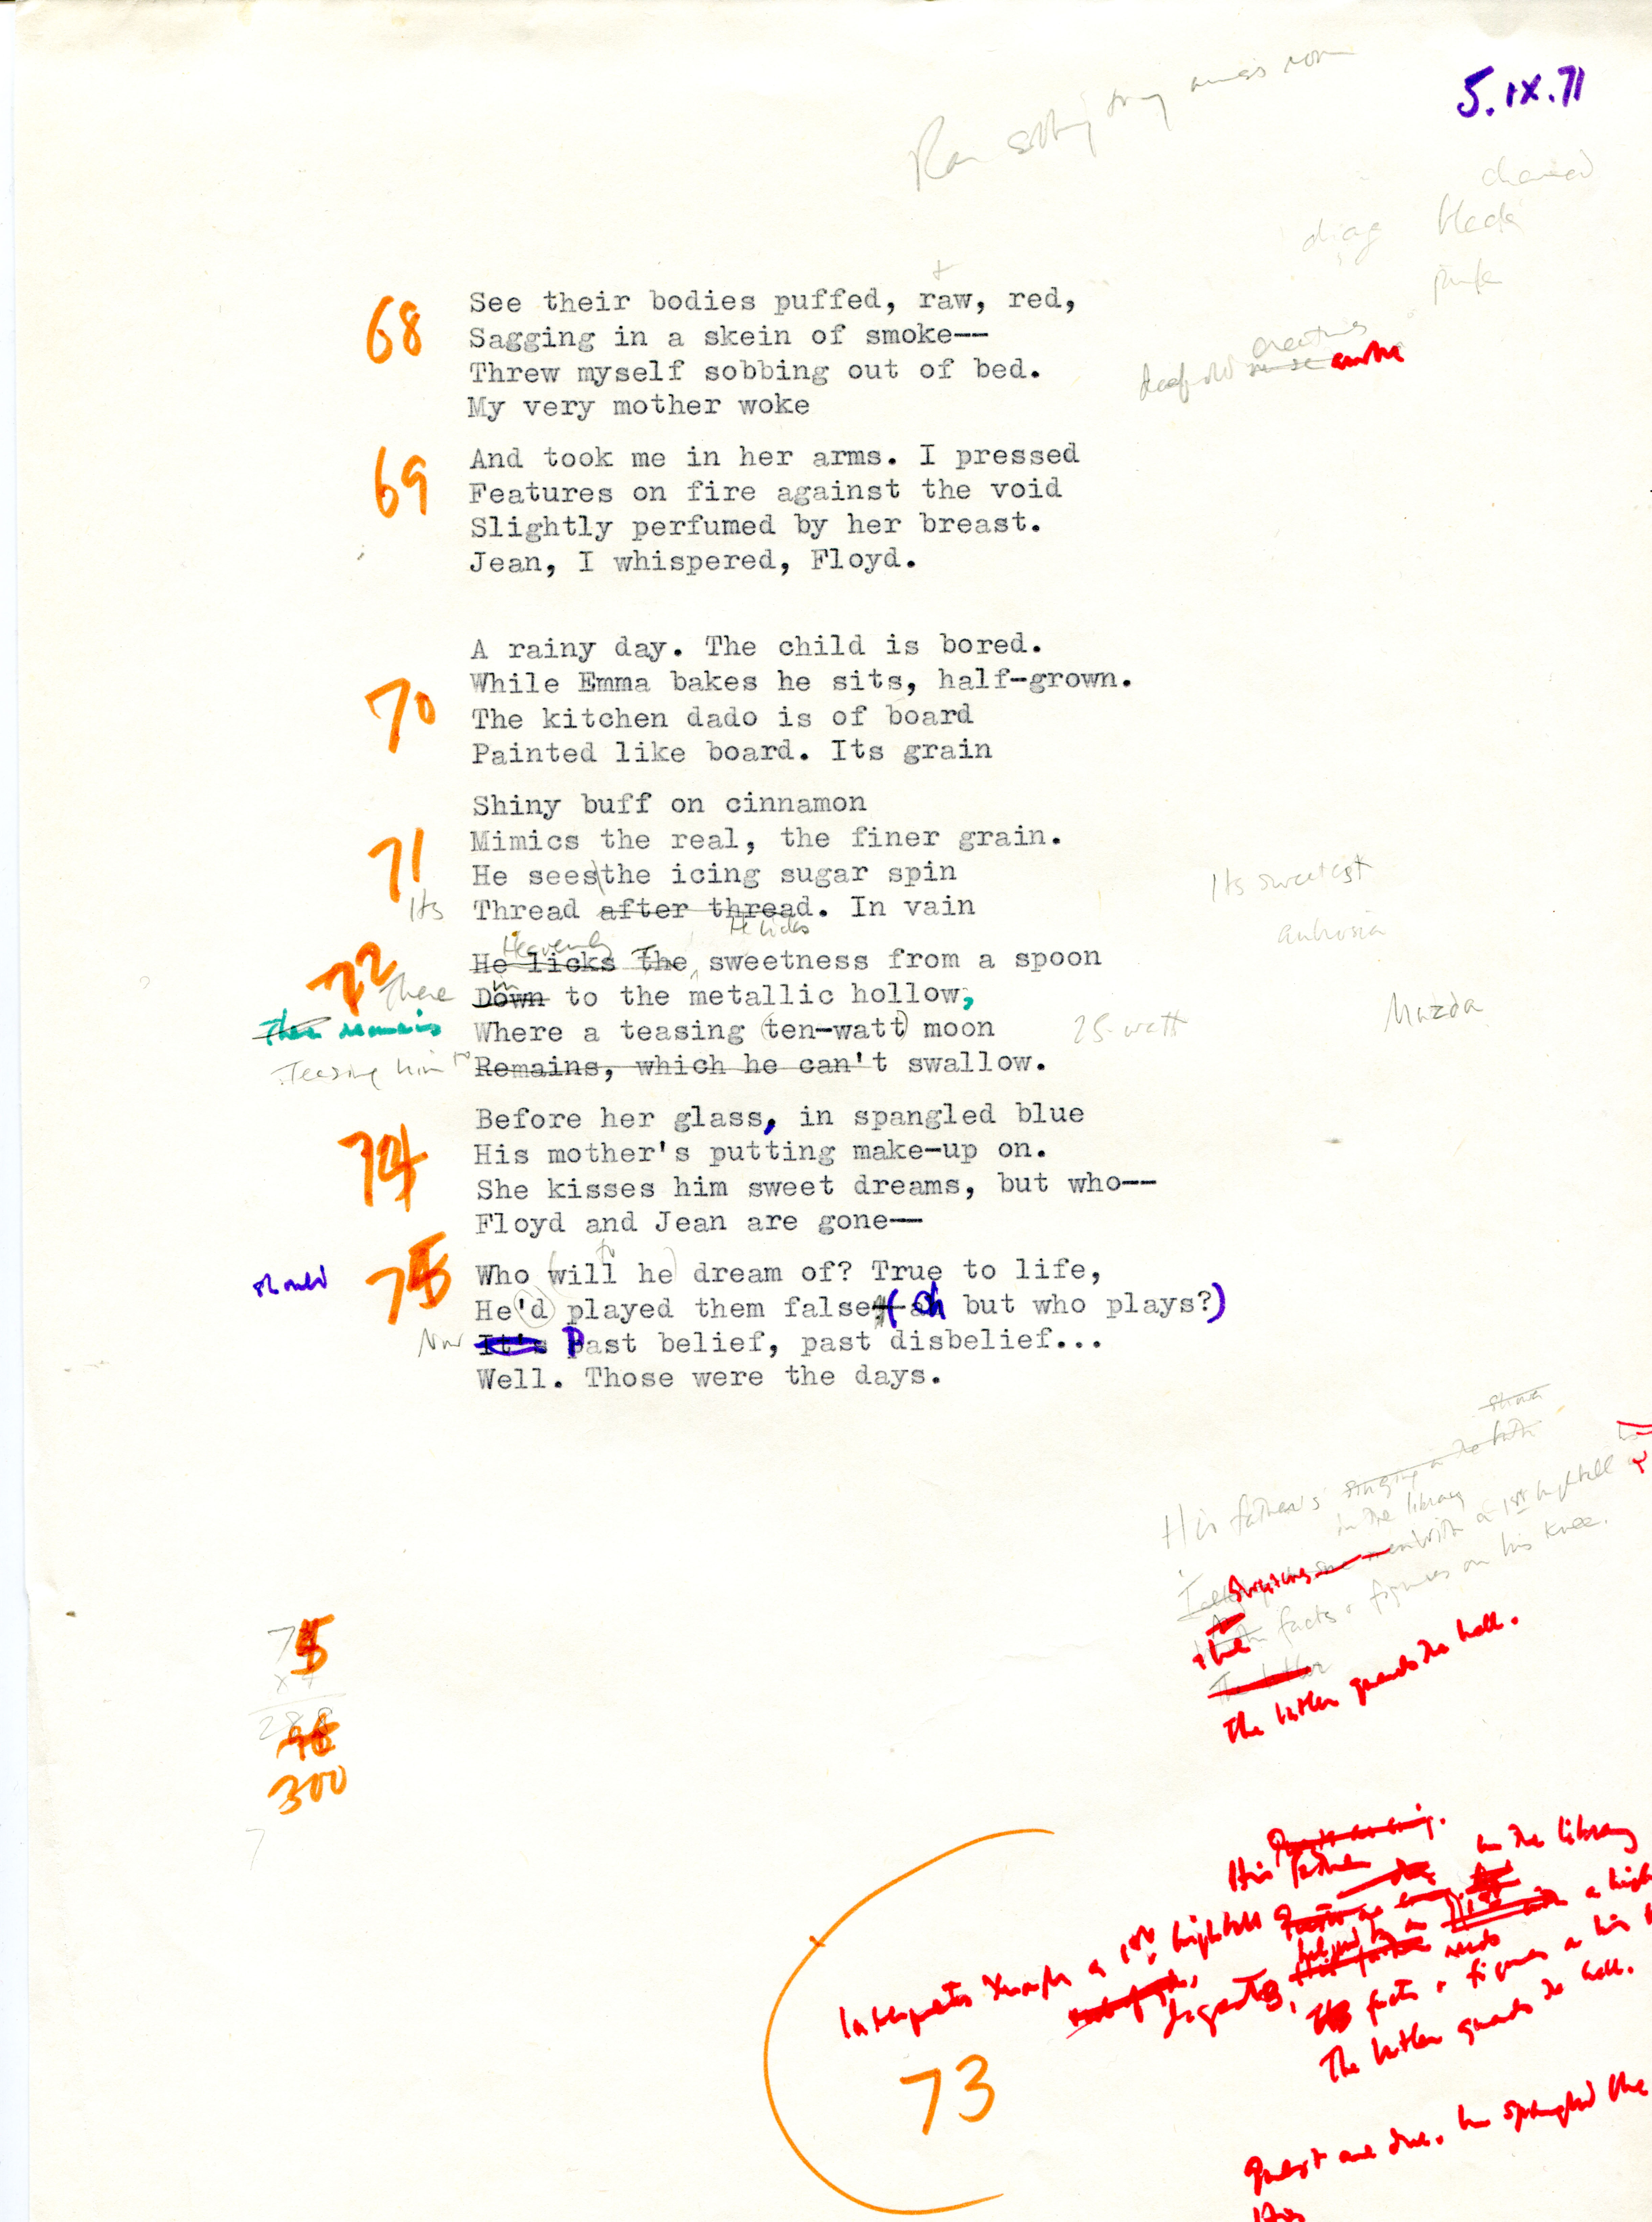 5.IX.71
Ran sobbing
charred
black
pink
68
See their bodies puffed, raw, red,
Sagging in a skein of smoke--
Threw myself sobbing out of bed.
My very mother woke
69
And took me in her arms. I pressed
Features on fire against the void
Slightly perfumed by her breast.
Jean, I whispered, Floyd.
70
A rainy day. The child is bored.
While Emma bakes he sits, half-grown.
The kitchen dado is of board
Painted like board. Its grain
71
Shiny buff on cinnamon
Mimics the real, the finer grain.
He sees the icing sugar spin
Its sweetest
Its Thread after thread. In vain
ambrosia
Heavenly He licks
72
He licks The sweetness from a spoon
There Down to the metallic hollow,
Mazda
There remains Where a teasing (ten-watt) moon 25-watt
Teasing him to Remains, which he can't swallow.
74
Before her glass, in spangled blue
His mother's putting make-up on.
She kisses him sweet dreams, but who--
Floyd and Jean are gone--
75
should Who (will he) dream of? True to life,
He'd played them false (oh but who plays?)
Now It's Past belief, past disbelief...
Well. Those were the days.
His father's singing in the bath
in the library
with a 1st highball
facts & figures on his knee.
The butler guards the hall.
75
x4
288
300
7
His father in the library
Interprets a 1st highball
facts & figures
The butler guards the hall.
73
Guests are due. In spangled
His